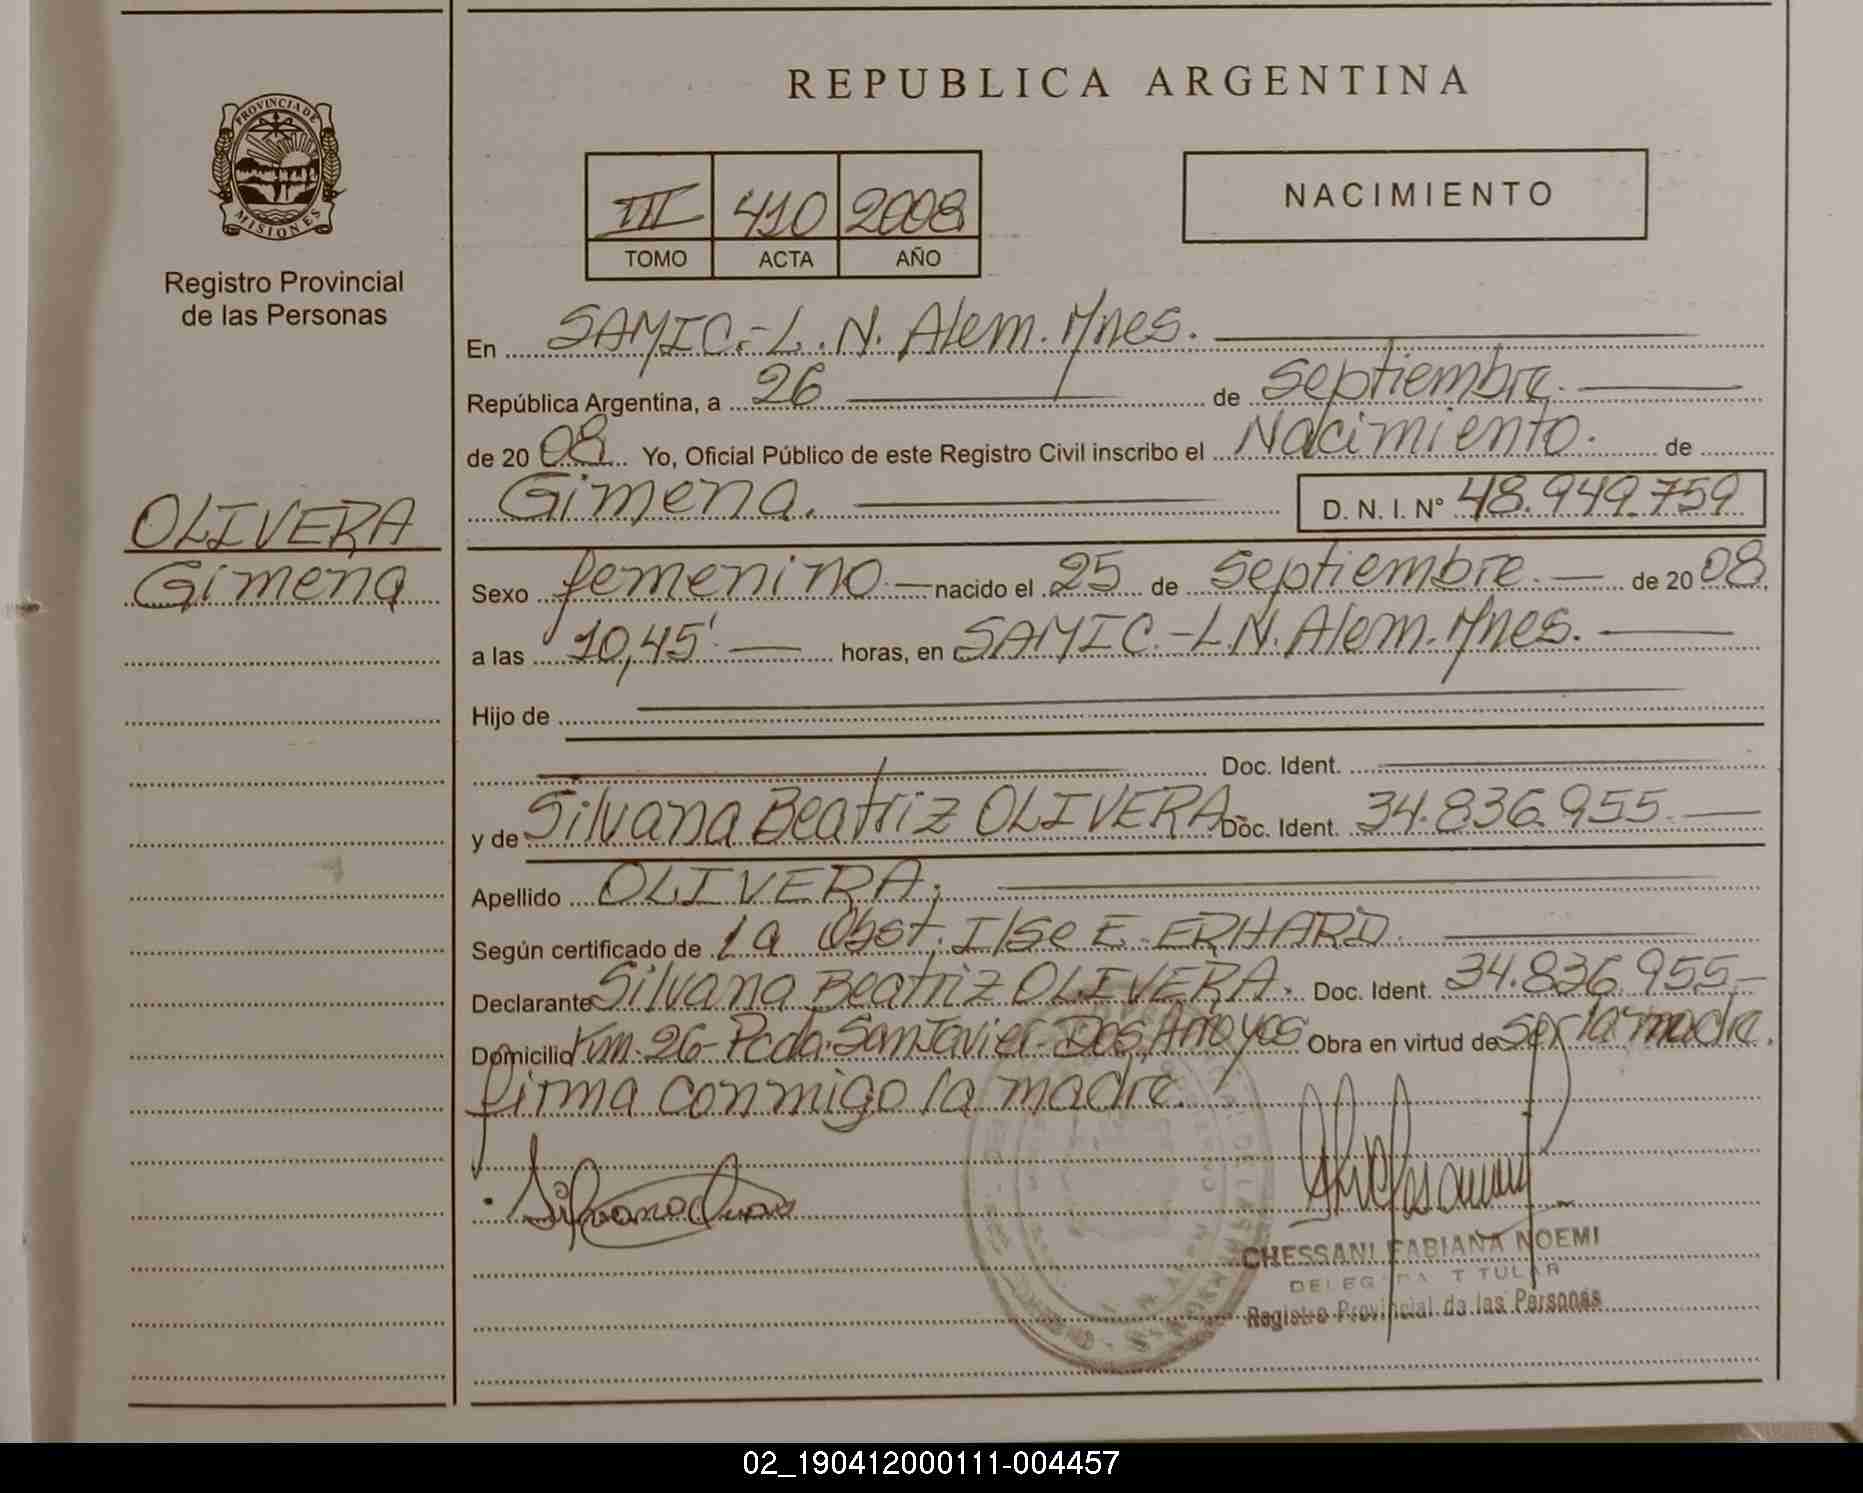 REPUBLICA ARGENTINA
PROVINCIA DE
MISIONES
Registro Provincial
de las Personas
III 410 2008
TOMO ACTA AÑO
NACIMIENTO
En SAMIC.-L.N. Alem. Mnes.
República Argentina, a 26 de Septiembre.
de 20 08 Yo, Oficial Público de este Registro Civil inscribo el Nacimiento. de
Gimena. D. N. I. N° 48.949.759
OLIVERA
Gimena
Sexo femenino.- nacido el 25 de Septiembre.- de 20 08
a las 10,45' horas, en SAMIC.-L.N. Alem. Mnes.
Hijo de
Doc. Ident.
y de Silvana Beatriz OLIVERA Doc. Ident. 34.836.955.-
Apellido OLIVERA;
Según certificado de la Obst. Ilse E. ERHARD.
Declarante Silvana Beatriz OLIVERA. Doc. Ident. 34.836.955-
Domicilio Km. 26- Pcda. San Javier- Dos Arroyos Obra en virtud de ser la madre.
firma conmigo la madre.
CHESSANI FABIANA NOEMI
DELEGADA TITULAR
Registro Provincial de las Personas
02_190412000111-004457